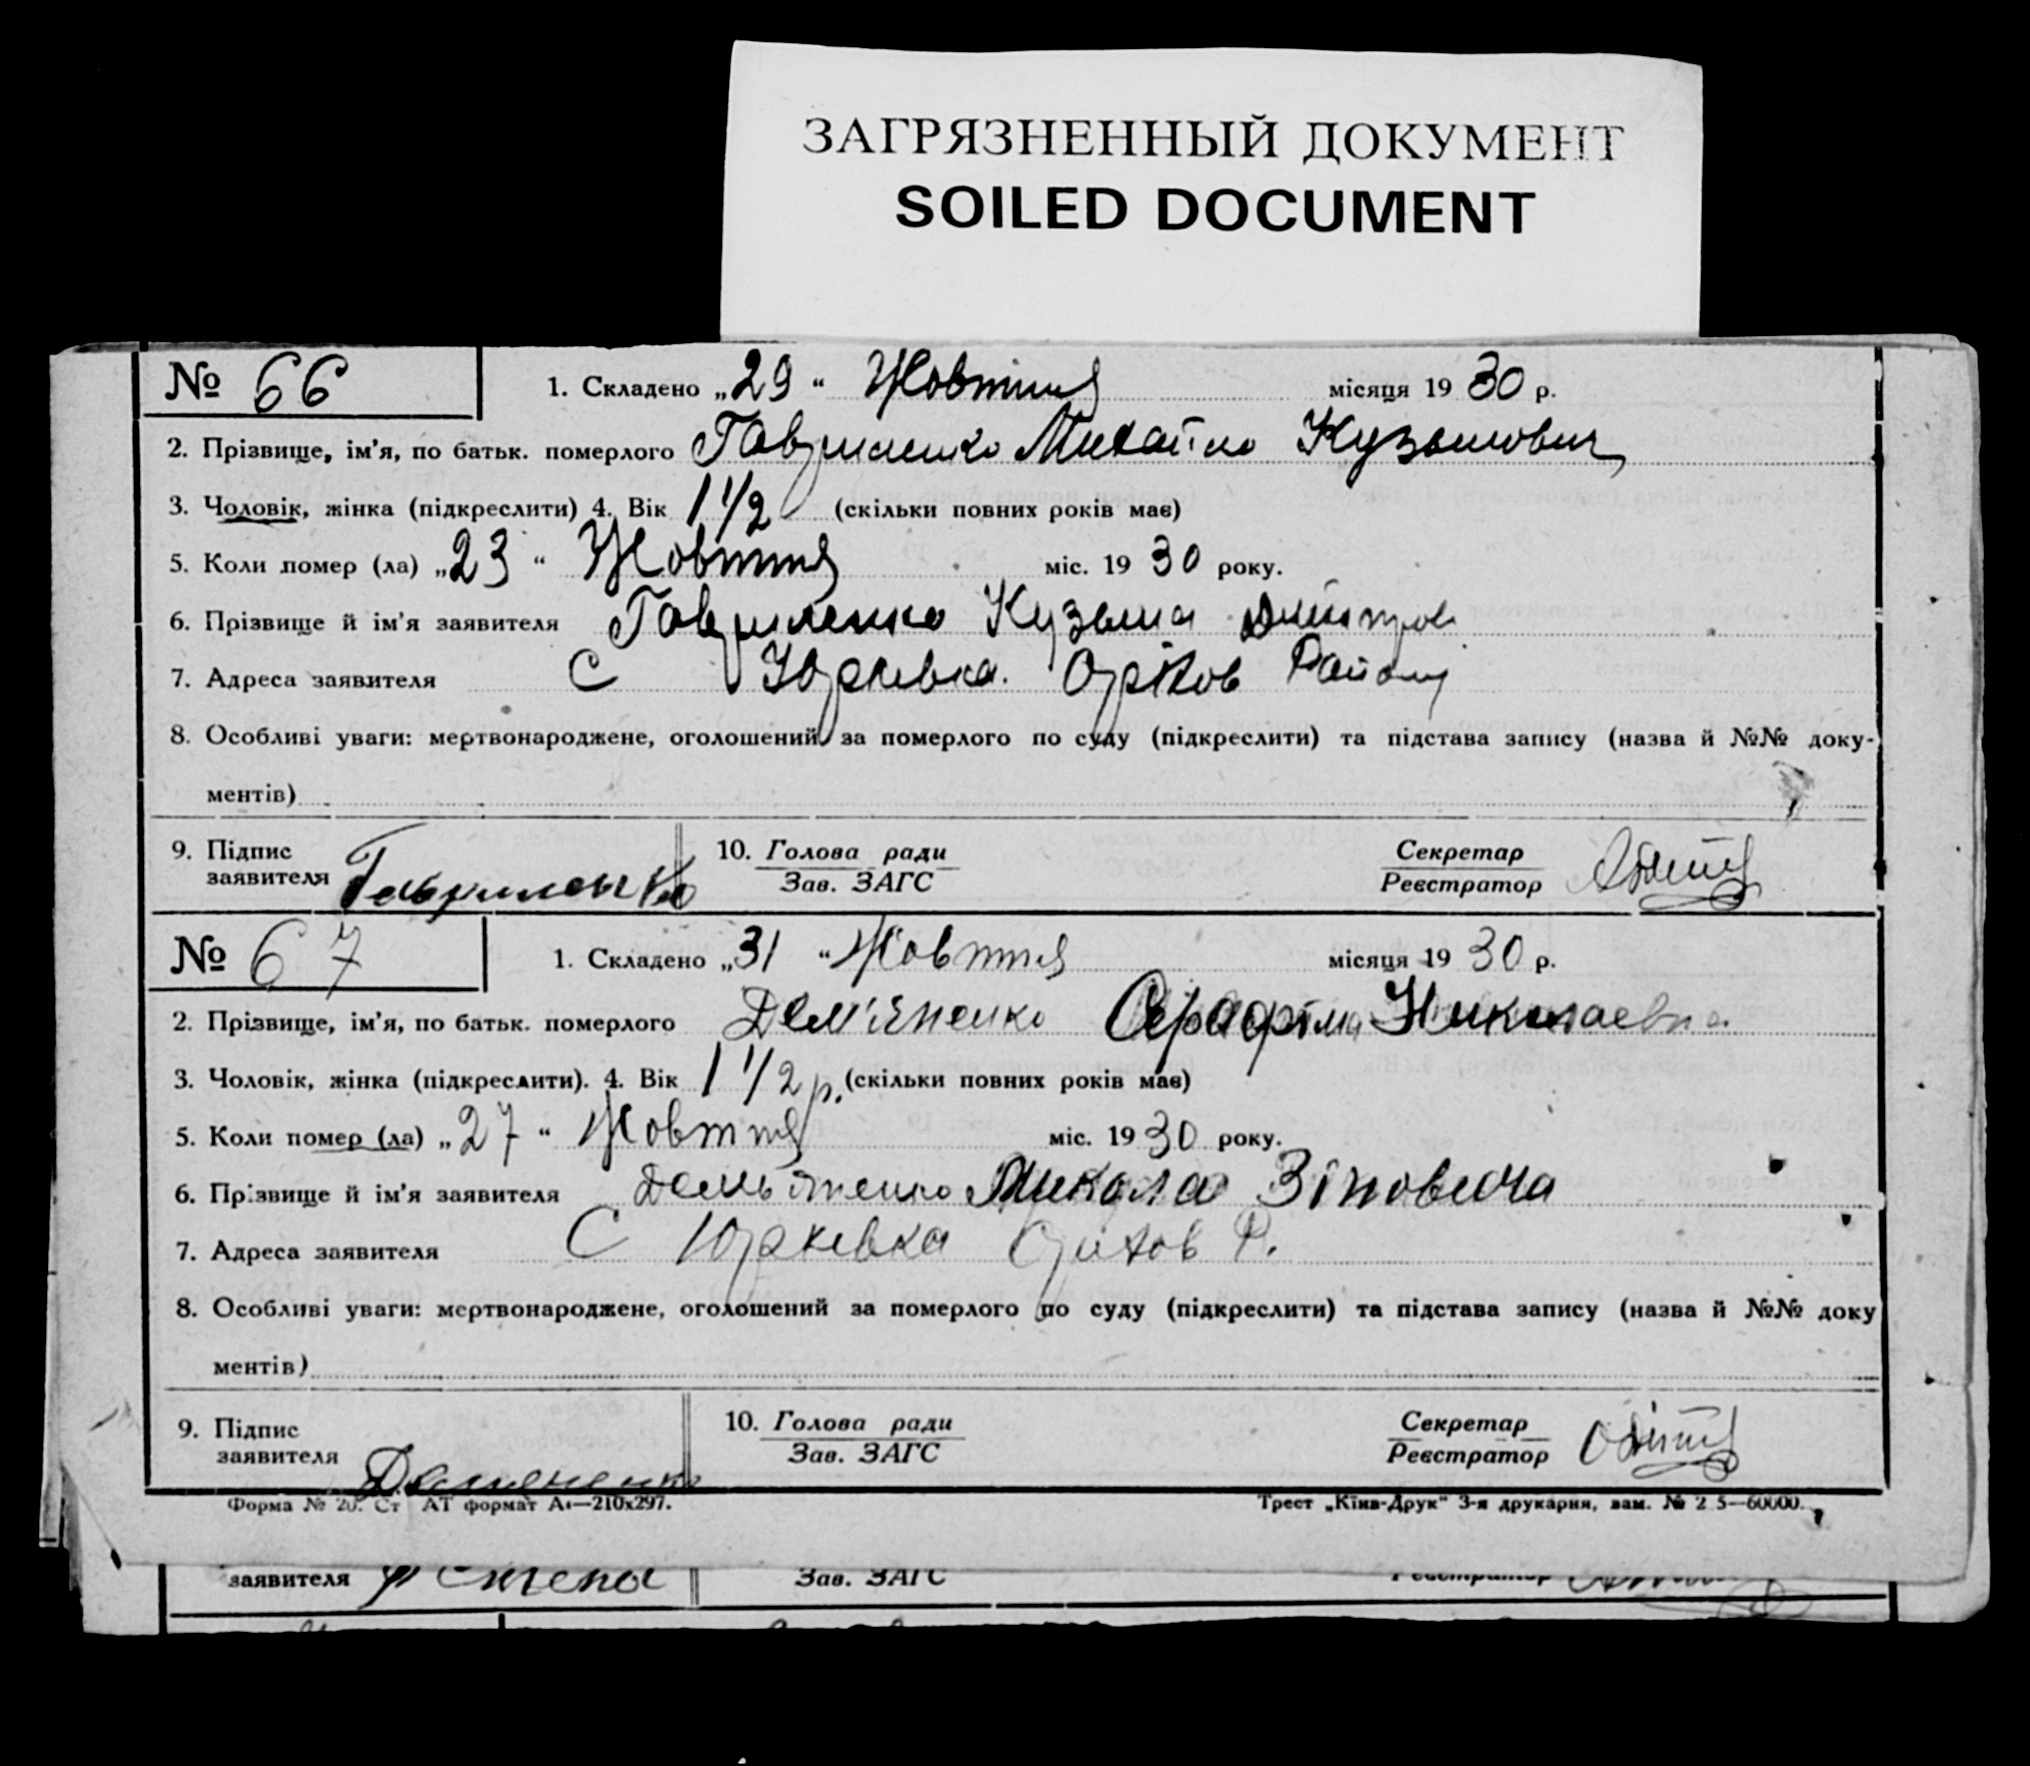 ЗАГРЯЗНЕННЫЙ ДОКУМЕНТ
SOILED DOCUMENT
№ 66
1. Складено „29“ Жовтня місяця 1930 р.
2. Прізвище, ім'я, по батьк. померлого Гавриленко Михайло Кузьмович
3. Чоловік, жінка (підкреслити) 4. Вік 1 1/2 (скільки повних років має)
5. Коли помер (ла) „23“ Жовтня міс. 1930 року.
6. Прізвище й ім'я заявителя Гавриленко Кузьма Дмитров
7. Адреса заявителя С Юрковка Оріхов Району
8. Особливі уваги: мертвонароджене, оголошений за померлого по суду (підкреслити) та підстава запису (назва й №№ доку-
ментів)
9. Підпис заявителя Гавриленко
10. Голова ради
Зав. ЗАГС
Секретар
Реєстратор
№ 67
1. Складено „31“ Жовтня місяця 1930 р.
2. Прізвище, ім'я, по батьк. померлого Дем'яненко Серафіма Николаевна
3. Чоловік, жінка (підкреслити). 4. Вік 1 1/2 р. (скільки повних років має)
5. Коли помер (ла) „27“ Жовтня міс. 1930 року.
6. Прізвище й ім'я заявителя Демьяненко Микола Зіновича
7. Адреса заявителя С Юрковка Оріхов Р.
8. Особливі уваги: мертвонароджене, оголошений за померлого по суду (підкреслити) та підстава запису (назва й №№ доку
ментів)
9. Підпис заявителя Демяненко
10. Голова ради
Зав. ЗАГС
Секретар
Реєстратор
Форма № 20. Ст АТ формат А4—210х297.
Трест „Київ-Друк“ 3-я друкарня, зам. № 2 5—60000.
заявителя
Зав. ЗАГС
Реєстратор